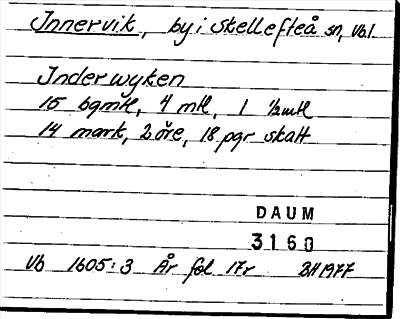 Innervik, by i Skellefteå sn, Vbl.
Inderwyken
15 bgmtl, 4 mtl, 1 ½mtl
14 mark, 2 öre, 18 pgr skatt
DAUM
3160
Vb 1605:3 År fol 17r BH1977